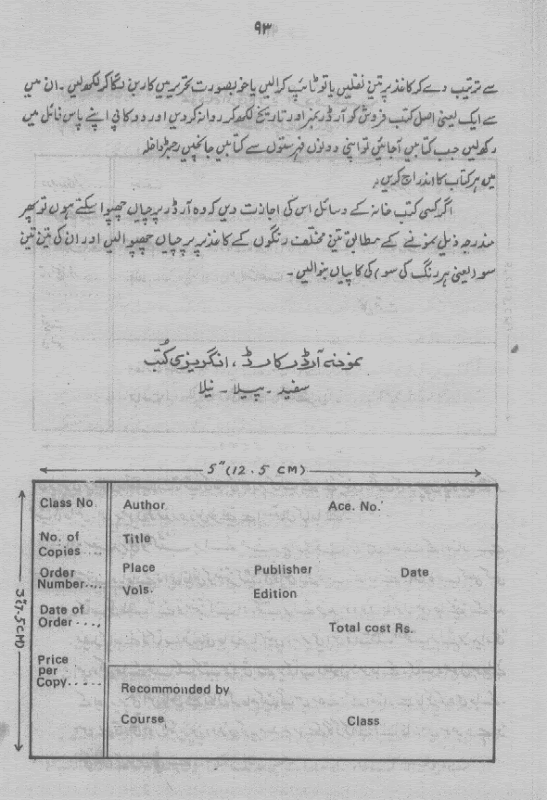 ۹۳
سے ترتیب دے کر کاغذ پر تین نقلیں یا تو ٹائپ کرالیں یا خوبصورت تحریر میں کاربن لگا کر لکھ لیں۔ ان میں
سے ایک یعنی اصل کتب فروش کو آرڈر نمبر اور تاریخ لکھ کر روانہ کردیں اور دو کاپی اپنے پاس فائل میں
رکھ لیں جب کتابیں آجائیں تو اسی دونوں فہرستوں سے کتابیں جانچیں رجسٹر داخلہ
میں ہر کتاب کا اندراج کریں۔
اگر کسی کتب خانہ کے وسائل اس کی اجازت دیں کہ وہ آرڈر پرچیاں چھپوا سکتے ہوں تو پھر
مندرجہ ذیل نمونے کے مطابق تین مختلف رنگوں کے کاغذ پر پرچیاں چھپوالیں اور ان کی تین تین
سو (یعنی ہر رنگ کی سو) کی کاپیاں بنوالیں۔
نمونہ آرڈر کارڈ، انگریزی کُتب
سفید ۔ پیلا ۔ نیلا
5" (12.5 CM)
3" (7.5 CM)
Class No Author Ace. No.
No. of Copies Title
Order Number.... Place Publisher Date
Vols. Edition
Date of Order ...., Total cost Rs.
Price per Copy.....
Recommonded by
Course Class